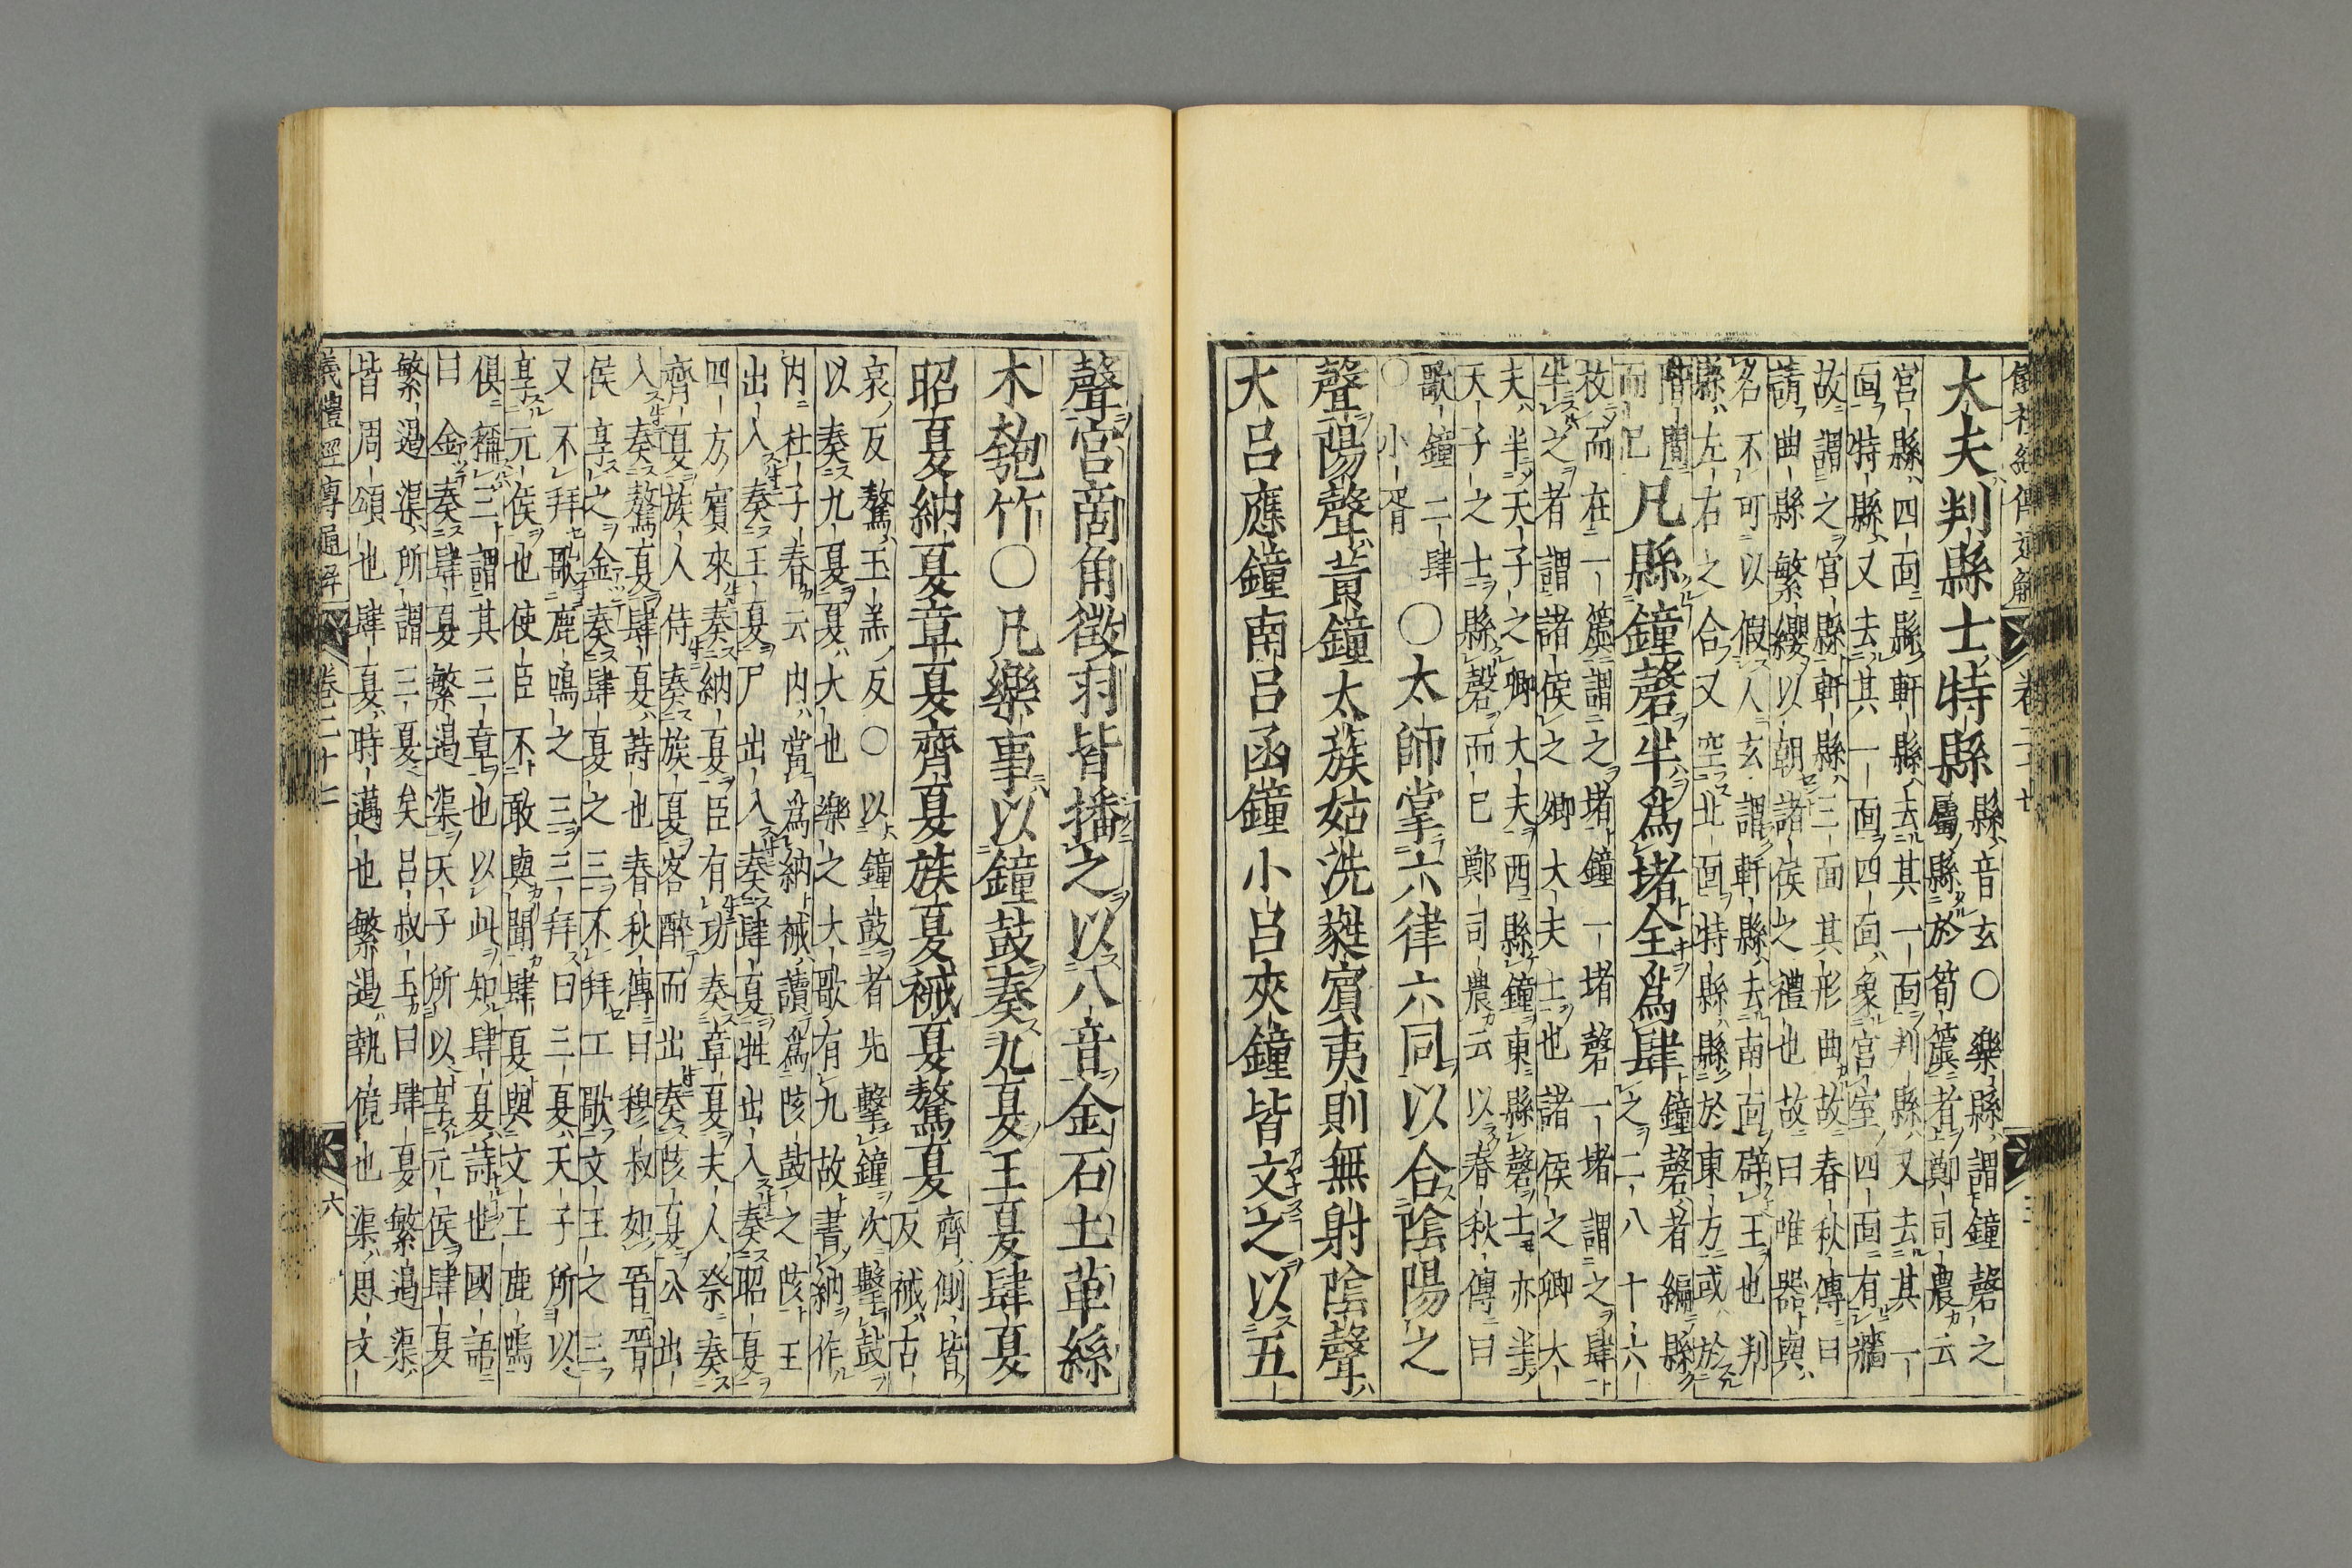 儀禮經傳通解 卷二十七
大夫判縣士特縣
縣音玄〇樂縣謂鐘磬之
屬縣於筍簴者鄭司農云
宮縣四面縣軒縣去其一面判縣又去其一
面特縣又去其一面四面象宮室四面有牆
故謂之宮縣軒縣三面其形曲故春秋傳曰
請曲縣繁纓以朝諸侯之禮也故曰唯器與
名不可以假人玄謂軒縣去南面辟王也判
縣左右之合又空北面特縣縣於東方或於
階間
而已
凡縣鐘磬半爲堵全爲肆
鐘磬者編縣
之二八十六
枚而在一簴謂之堵鐘一堵磬一堵謂之肆
半之者謂諸侯之卿大夫士也諸侯之卿大
夫半天子之卿大夫西縣鐘東縣磬士亦半
天子之士縣磬而已鄭司農云以春秋傳曰
歌鐘二肆
〇小胥
〇太師掌六律六同以合陰陽之
聲陽聲黃鐘太蔟姑洗蕤賓夷則無射陰聲
大呂應鐘南呂函鐘小呂夾鐘皆文之以五
聲宮商角徵羽皆播之以八音金石土革絲
木匏竹〇凡樂事以鐘鼓奏九夏王夏肆夏
昭夏納夏章夏齊夏族夏祴夏驁夏
齊側皆
反祴古
哀反驁五羔反〇以鐘鼓者先擊鐘次擊鼓
以奏九夏夏大也樂之大歌有九故書納作
內杜子春云內當爲納祴讀爲陔鼓之陔王
出入奏王夏尸出入奏肆夏牲出入奏昭夏
四方賓來奏納夏臣有功奏章夏夫人祭奏
齊夏族人侍奏族夏客醉而出奏陔夏公出
入奏驁夏肆夏詩也春秋傳曰穆叔如晉晉
侯享之金奏肆夏之三不拜工歌文王之三
又不拜歌鹿鳴之三三拜曰三夏天子所以
享元侯也使臣不敢與聞肆夏與文王鹿鳴
俱稱三謂其三章也以此知肆夏詩也國語
曰金奏肆夏繁遏渠天子所以享元侯肆夏
繁遏渠所謂三夏矣呂叔玉曰肆夏繁遏渠
皆周頌也肆夏時邁也繁遏執傹也渠思文
儀禮經傳通解 卷二十七 六